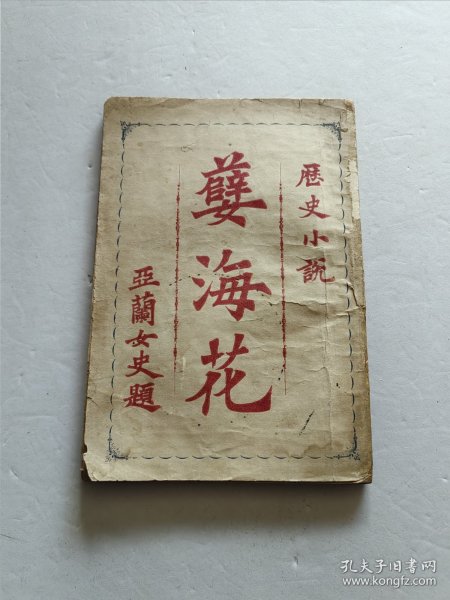 歷史小說
孽海花
亞蘭女史題
孔夫子旧书网
www.kongfz.com